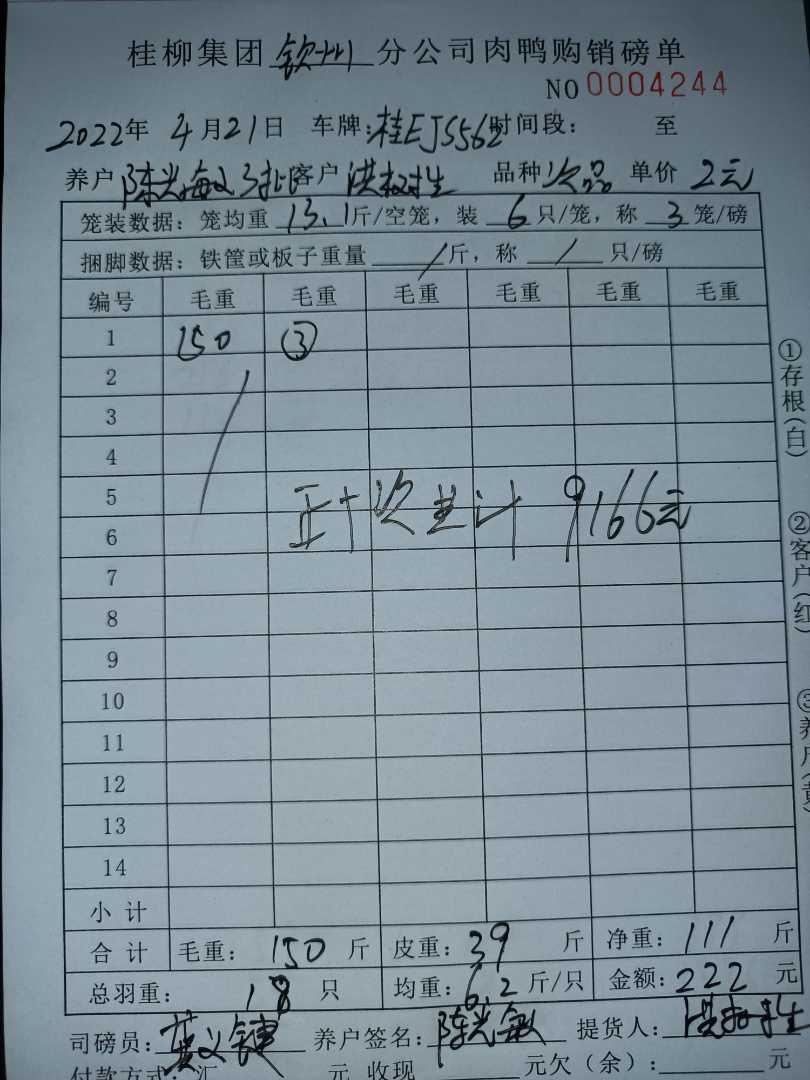 桂柳集团 钦州 分公司肉鸭购销磅单
NO 0004244
2022年 4月21日 车牌:桂EJS562 时间段: 至
养户 陈光敏 客户 洪 生 品种 次品 单价 2元
笼装数据:笼均重 13.1斤/空笼,装 6 只/笼,称 3 笼/磅
捆脚数据:铁筐或板子重量 / 斤,称 / 只/磅
编号 毛重 毛重 毛重 毛重 毛重 毛重
1 150 ③
2
3
4
5
正十次共计 9166元
6
7
8
9
10
11
12
13
14
小计
合计 毛重: 150 斤 皮重: 39 斤 净重: 111 斤
总羽重: 18 只 均重: 6.2 斤/只 金额: 222 元
司磅员: 养户签名: 陈光敏 提货人: 洪 生
付款方式:汇 元 收现 元欠(余): 元
①存根(白)
②客户(红)
③养户(黄)